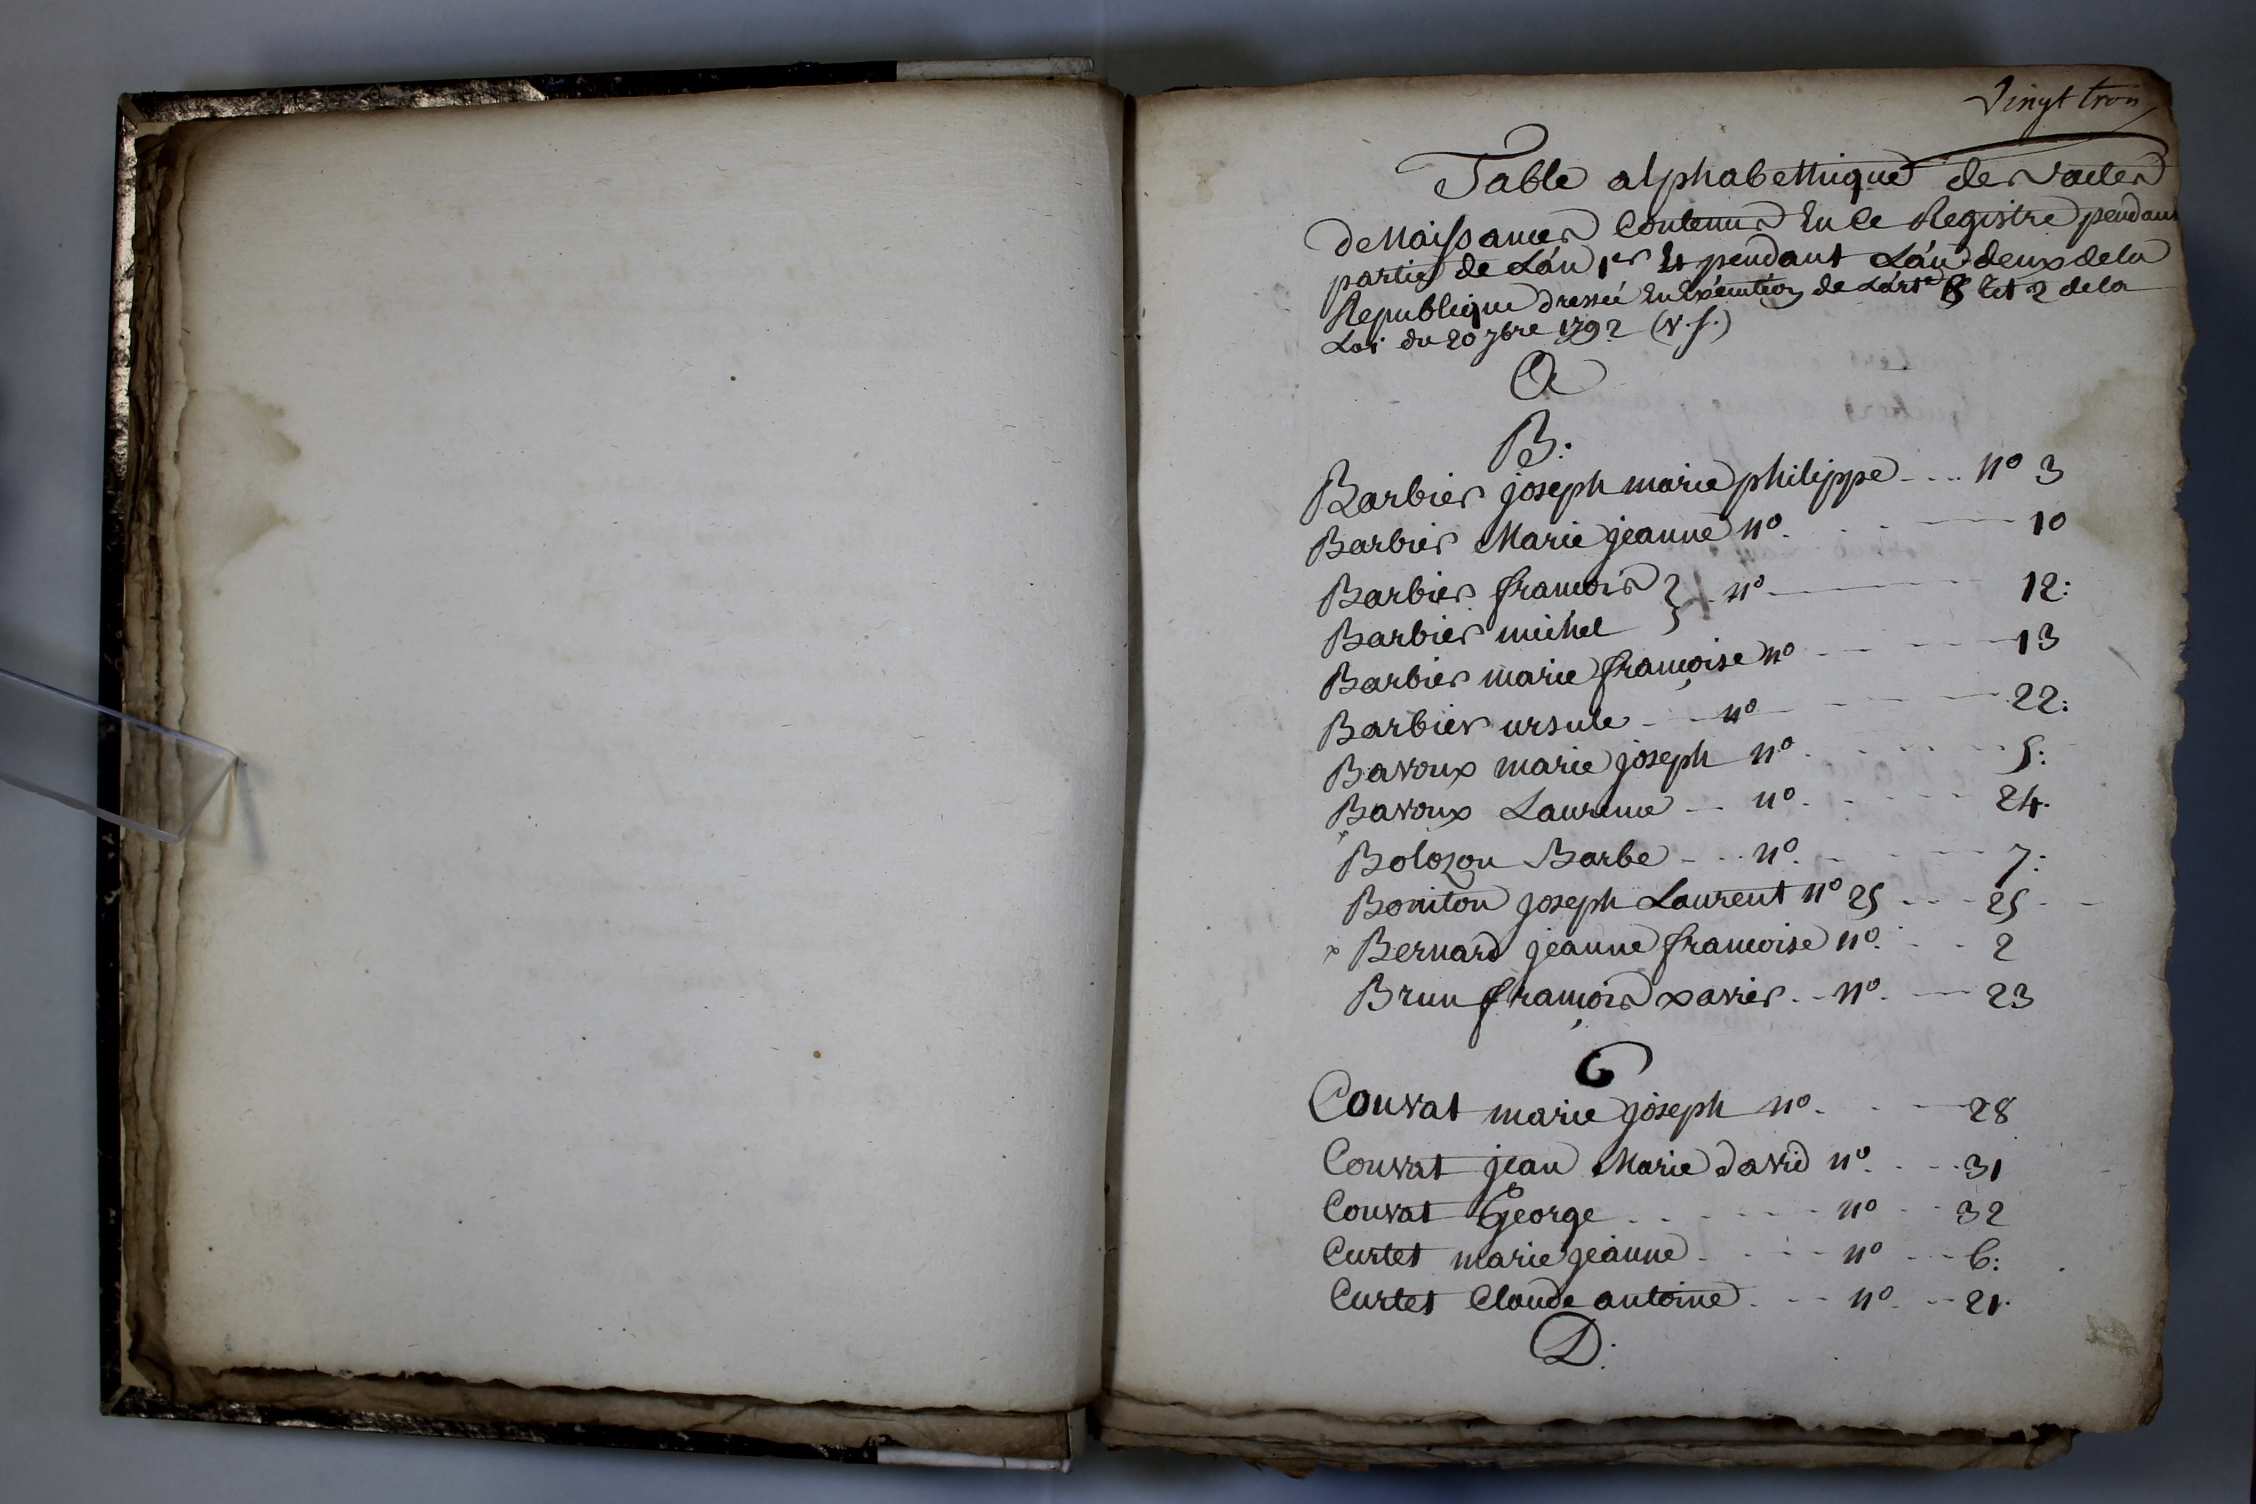 Vingt trois
Table alphabethique des actes
de Naissances Contenus En ce Registre pendant
partie de L'an 1er Et pendant L'an deux de la
Republique dressée En Exécution de L'art. 8 tit 2 de la
Loi du 20 7bre 1792 (v. s.)
A
B:
Barbier joseph marie philippe - - - n° 3
Barbier Marie jeanne n° - - - 10
Barbier francois } n° - - - 12:
Barbier michel
Barbier marie françoise n° - - - 13
Barbier ursule - - n° - - - 22:
Bavoux marie joseph n° - - - 5:
Bavoux Laurence - - n° - - - 24.
x Bolozon Barbe - - n° - - - 7:
Boniton joseph Laurent n° 25 - - - 25 - -
x Bernard jeanne francoise n° - - 2
Brun françois xavier - - n° - - 23
C
Couvat marie joseph n° - - - 28
Couvat jean Marie david n° - - - 31
Couvat George - - - - - n° - - 32
Curtet marie jeanne - - - - n° - - - 6:
Curtet Claude antoine - - - n° - - 21.
D: